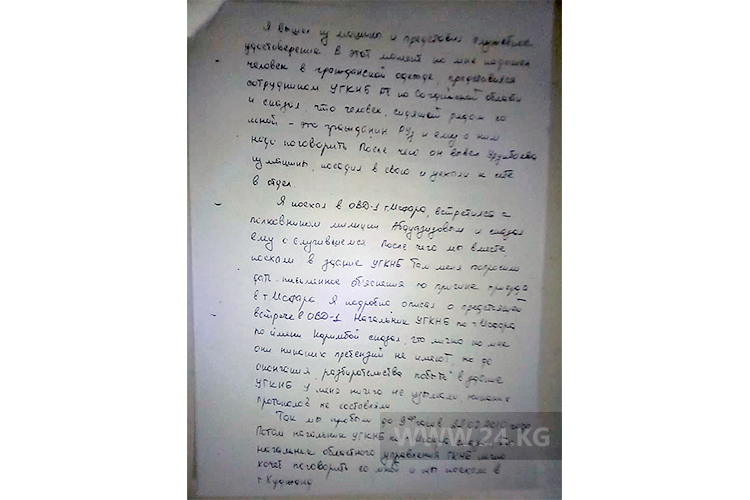 Я вышел из машины и представил служебное
удостоверение. В этот момент ко мне подошел
человек в гражданской одежде, представился
сотрудником УГКНБ РТ по Согдийской области
и сказал, что человек, сидящий рядом со
мной - это гражданин РУз и ему с ним
надо поговорить. После чего он вывел
из машины, посадил в свою и уехали к себе
в отдел.
Я поехал в ОВД-1 г. Исфара, встретился с
полковником милиции Абдуазизовым и сказал
ему о случившемся. После чего мы вместе
поехали в здание УГКНБ. Там меня попросили
дать письменное объяснение по причине приезда
в г. Исфара. Я подробно описал о предстоящей
встрече в ОВД-1. Начальник УГКНБ по г. Исфара
по имени Каримбой сказал, что лично ко мне
они никаких претензий не имеют, но до
окончания разбирательства побыть в здании
УГКНБ. У меня ничего не изымали, никаких
протоколов не составляли.
Так мы пробыли до 9 часов
Потом начальник УГКНБ
начальник областного управления ГКНБ лично
хочет поговорить со мной и мы поехали в
г. Худжанд
WWW.24.KG